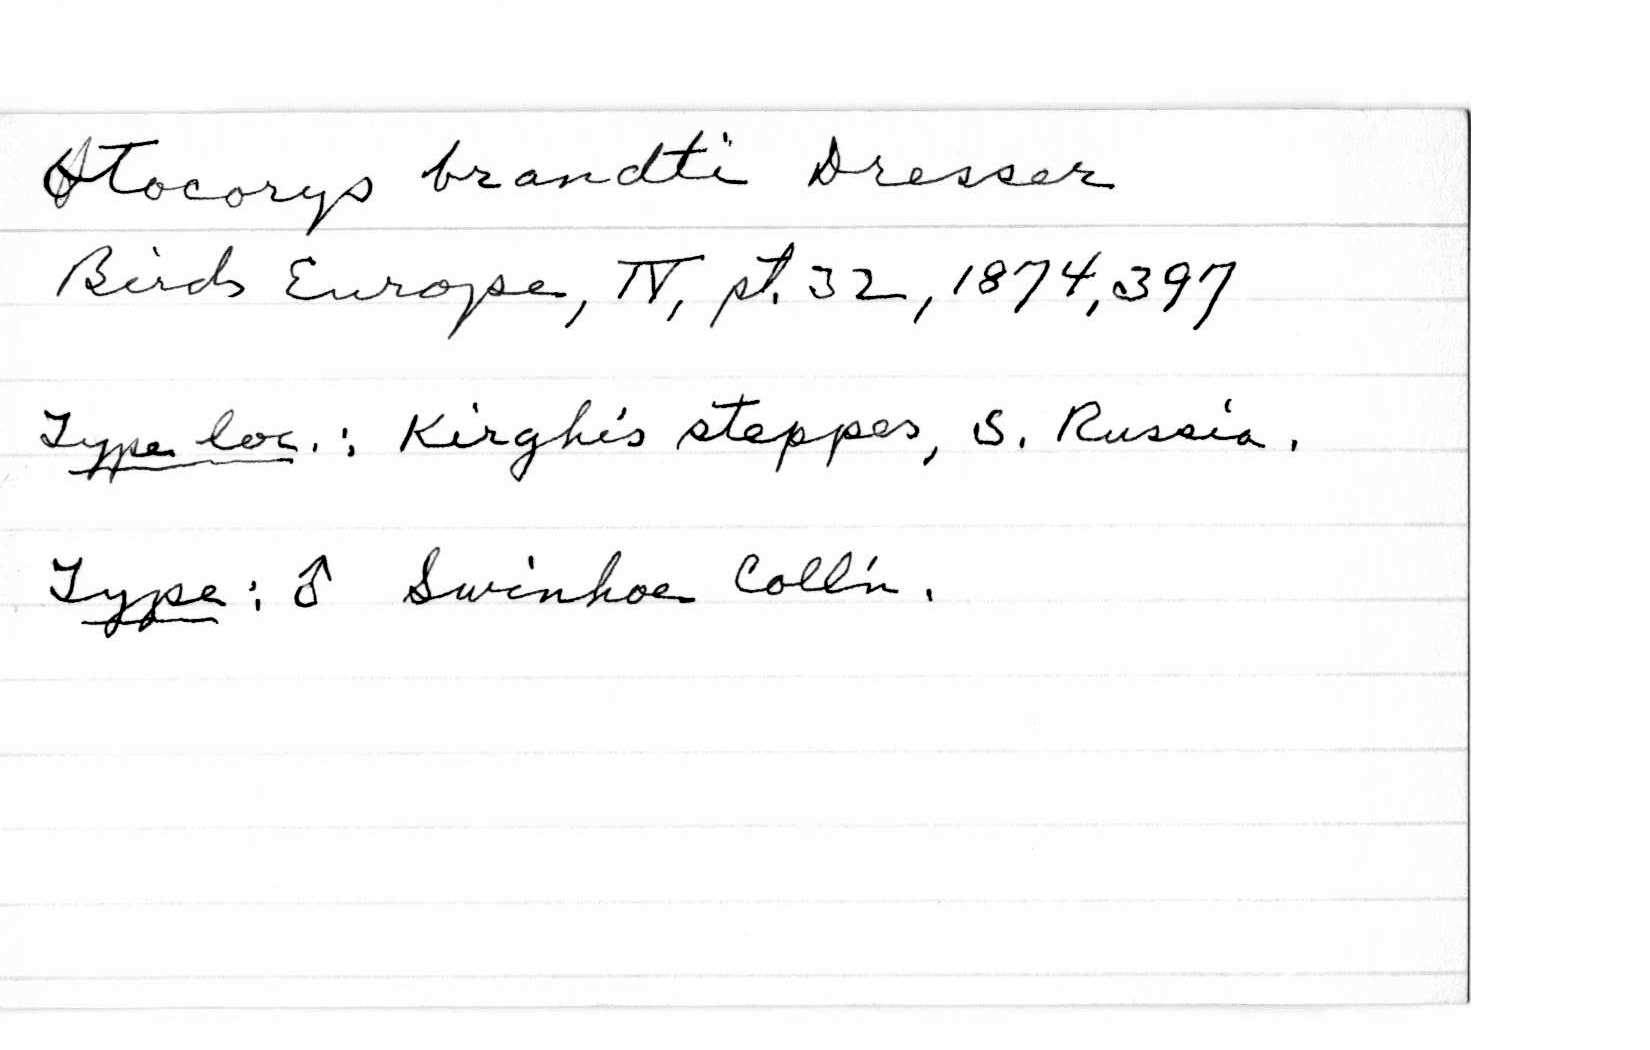 Otocorys brandti Dresser
Birds Europe, IV, pt. 32, 1874, 397
Type loc.: Kirghis steppes, S. Russia.
Type: ♂ Swinhoe Coll'n.